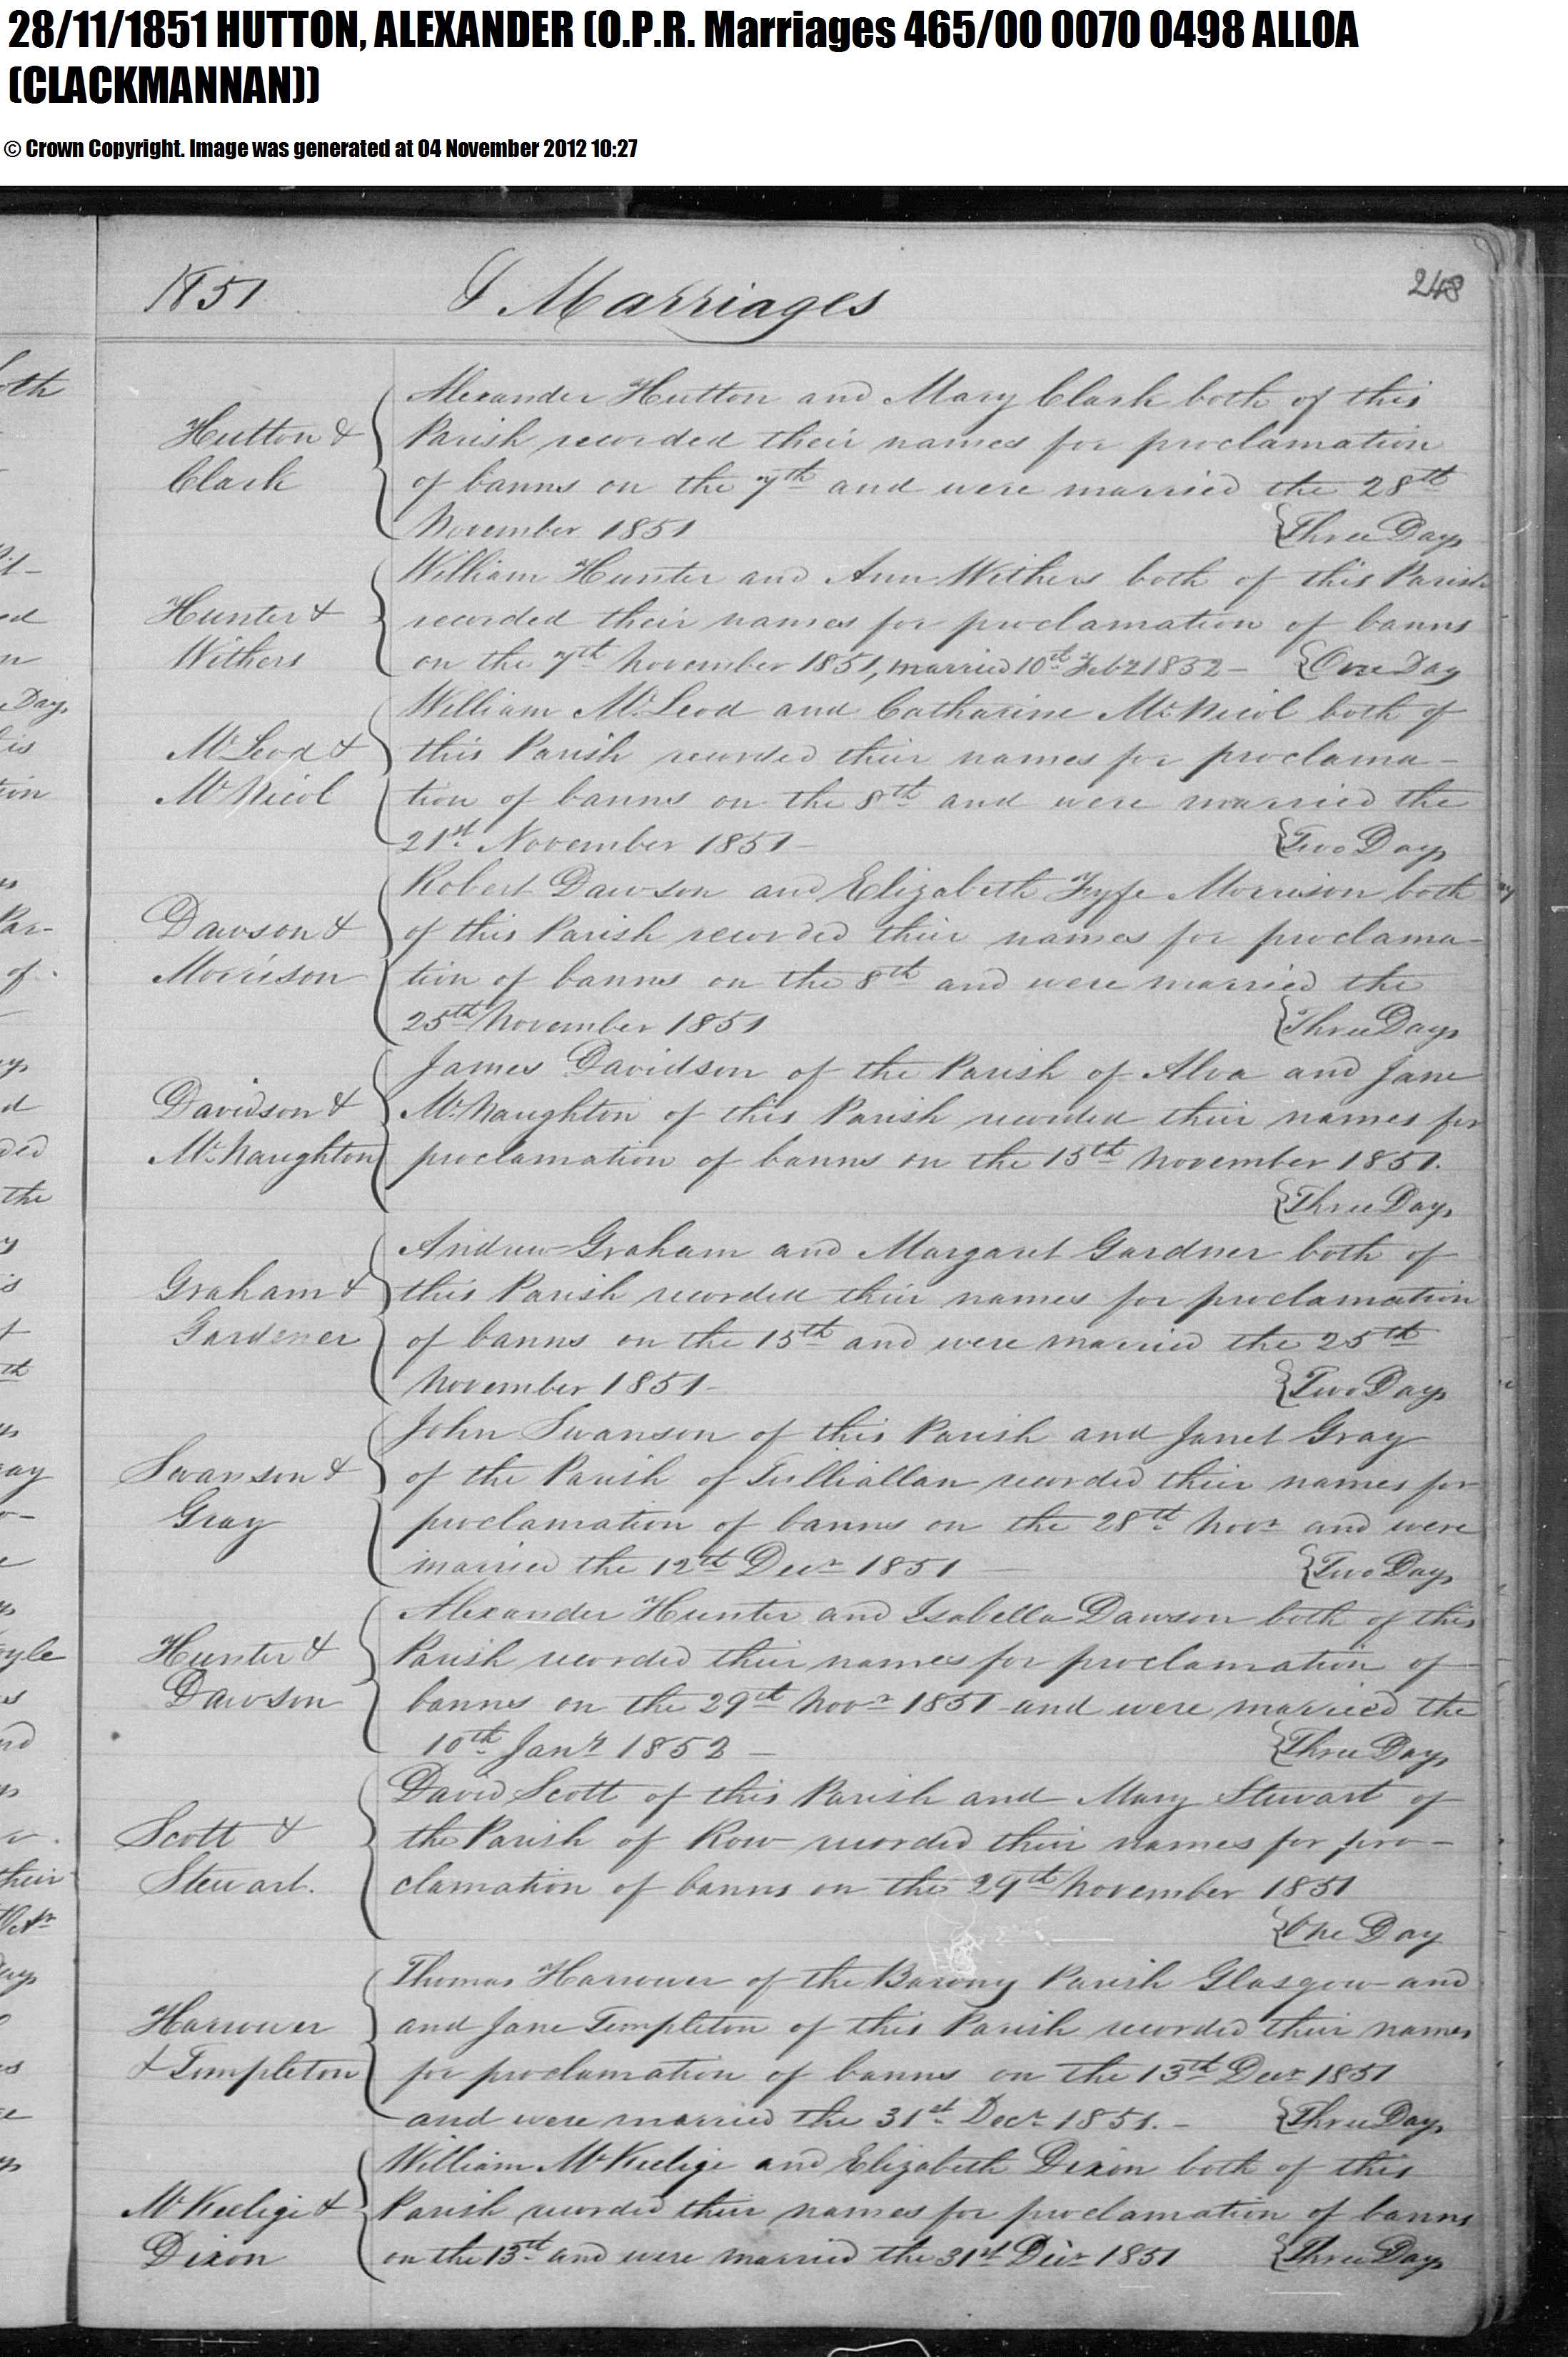 28/11/1851 HUTTON, ALEXANDER (O.P.R. Marriages 465/00 0070 0498 ALLOA
(CLACKMANNAN))
© Crown Copyright. Image was generated at 04 November 2012 10:27
1851 Marriages 248
Hutton &
Clark
Alexander Hutton and Mary Clark both of this
Parish recorded their names for proclamation
of banns on the 7th and were married the 28th
November 1851 {Three Days
Hunter &
Withers
William Hunter and Ann Withers both of this Parish
recorded their names for proclamation of banns
on the 7th November 1851, married 10th Feby 1852 – {One Day
McLeod &
McNicol
William McLeod and Catharine McNicol both of
this Parish recorded their names for proclama–
tion of banns on the 8th and were married the
21st November 1851 – {Two Days
Dawson &
Morrison
Robert Dawson and Elizabeth Fyfe Morrison both
of this Parish recorded their names for proclama–
tion of banns on the 8th and were married the
25th November 1851 {Three Days
Davidson &
McNaughton
James Davidson of the Parish of Alva and Jane
McNaughton of this Parish recorded their names for
proclamation of banns on the 15th November 1851.
{Three Days
Graham &
Gardener
Andrew Graham and Margaret Gardner both of
this Parish recorded their names for proclamation
of banns on the 15th and were married the 25th
November 1851 – {Two Days
Swanson &
Gray
John Swanson of this Parish and Janet Gray
of the Parish of Tulliallan recorded their names for
proclamation of banns on the 28th Novr and were
married the 12th Decr 1851 – {Two Days
Hunter &
Dawson
Alexander Hunter and Isabella Dawson both of this
Parish recorded their names for proclamation of
banns on the 29th Novr 1851 and were married the
10th Jany 1852 – {Three Days
Scott &
Stewart.
David Scott of this Parish and Mary Stewart of
the Parish of Row recorded their names for pro–
clamation of banns on the 29th November 1851
{One Day
Harrower
& Templeton
Thomas Harrower of the Barony Parish Glasgow and
and Jane Templeton of this Parish recorded their names
for proclamation of banns on the 13th Decr 1851
and were married the 31st Decr 1851. – {Three Days
McKeelige &
Dixon
William McKeelige and Elizabeth Dixon both of this
Parish recorded their names for proclamation of banns
on the 13th and were married the 31st Decr 1851 {Three Days